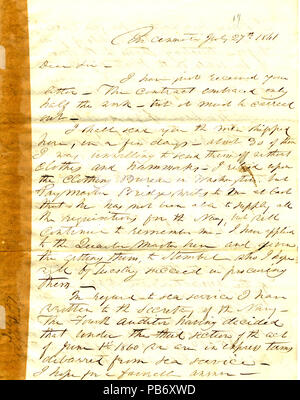 Cincinnati July 27th 1861
Dear Sir-
I have just received your
letter - The contract embraced only
half the work - but it must be carried
out -
I shall send you the men shipped
here, in a few days - about 30 of them
I was unwilling to send them off without
Clothes and Hammocks - I relied upon
the Clothing Bureau in Washington but
Pay Master Bridge writes to me at last
that he has not been able to supply all
the requisitions for the Navy, but will
Continue to remember me - I have applied
to the Quarter Master here and
the getting them, to
by Tuesday succeed in procuring
them -
In regard to sea service I have
written to the Secretary of the Navy -
The Fourth Auditor having decided
that under the third section of the act
of June 1st 1860 we are in express terms
debarred from sea service -
I hope for a favorable answer -
alamy
Image ID: PB6XWD
www.alamy.com